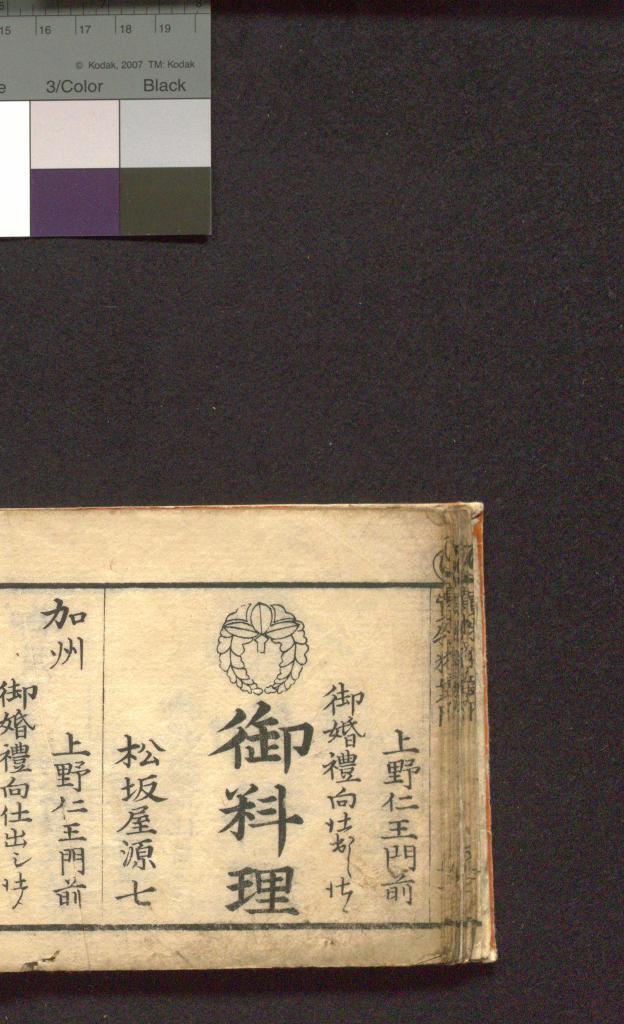 15 16 17 18 19
© Kodak, 2007 TM: Kodak
3/Color Black
上野仁王門前
御婚禮向仕出し仕
御料理
松坂屋源七
加州
上野仁王門前
御婚禮向仕出シ仕